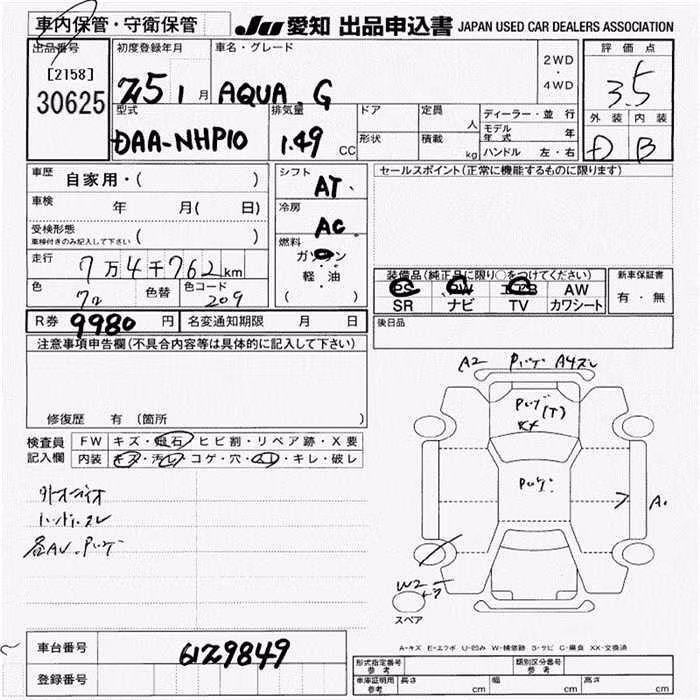 車内保管・守衛保管
JU 愛知 出品申込書 JAPAN USED CAR DEALERS ASSOCIATION
出品番号
[2158]
30625
初度登録年月
25 1 月
車名・グレード
AQUA. G
2WD
・
4WD
評価点
3.5
外装 内装
D B
型式
DAA-NHP10
排気量
1.49 CC
ドア
形状
定員 人
積載 kg
ディーラー・並行
モデル年式 年
ハンドル 左・右
車歴 自家用・( )
車検 年 月( 日)
受検形態 ( )
車検付きのみ記入して下さい
走行 7万4千762km
色
色替
色コード 209
シフト
AT.
冷房
AC
燃料
ガソリン
軽・油
( )
セールスポイント(正常に機能するものに限ります)
装備品(純正品に限り○をつけてください)
PS PW エアB AW
SR ナビ TV カワシート
新車保証書
有・無
R券 9980 円
名変通知期限 月 日
後日品
注意事項申告欄(不具合内容等は具体的に記入して下さい)
修復歴 有(箇所 )
検査員
記入欄
FW キズ・飛石・ヒビ割・リペア跡・X要
内装 キズ・汚レ・コゲ・穴・スレ・キレ・破レ
外オーディオ
ハンドルスレ
各AU.Pハゲ
A2 Pハゲ A4スレ
Pハゲ(T)
Pハゲ.
A.
W2
スペア
A-キズ E-エクボ U-凹み W-補修跡 S-サビ C-腐食 XX-交換済
車台番号 6129849
登録番号
形式指定番号
参考
類別区分番号
参考
車庫証明用
参考
長さ cm 幅 cm 高さ cm